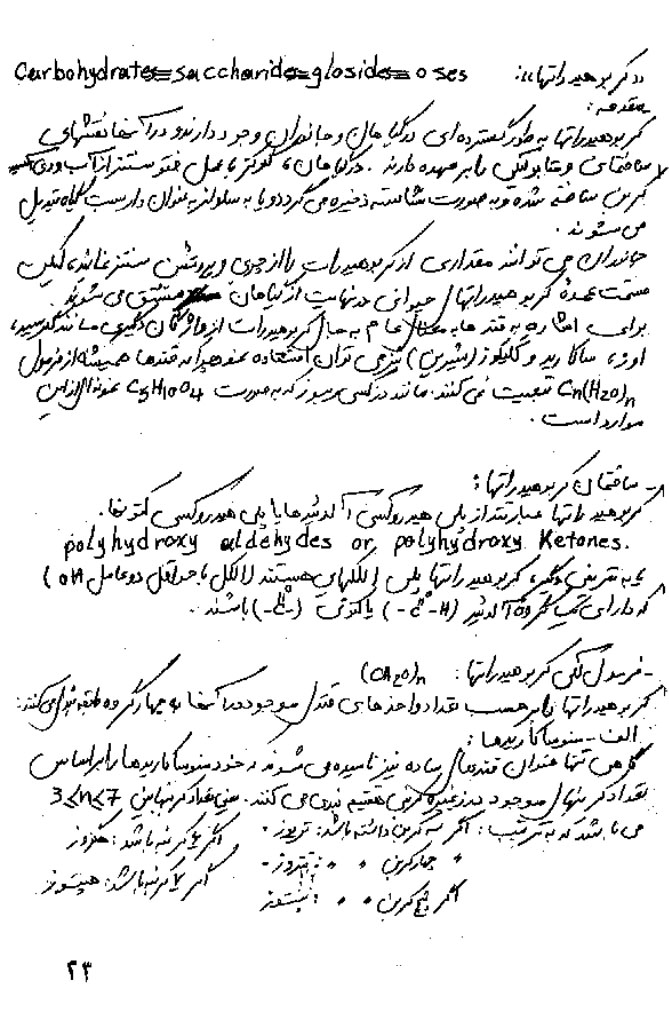 «کربوهیدراتها»: Carbohydrates≡saccharides≡glosides≡oses
مقدمه:
کربوهیدراتها به طور گسترده ای در گیاهان و جانوران وجود دارند و در آنها نقشهای
ساختمانی و متابولیکی را بر عهده دارند. در گیاهان، گلوکز با عمل فتوسنتز از آب و دی اکسید
کربن ساخته شده و به صورت نشاسته ذخیره می گردد و یا به سلولز به عنوان داربست گیاه تبدیل
می شوند.
جانوران می توانند مقداری از کربوهیدرات را از چربی و پروتئین سنتز نمایند، لیکن
قسمت عمدهٔ کربوهیدراتهای حیوانی در نهایت از گیاهان مشتق می شوند.
برای اشاره به قندها به معنای عام به جای کربوهیدرات از واژگان دیگری مانند گلوسید،
اوز، ساکارید و گلیکوز (شیرین) نیز می توان استفاده نمود چرا که قندها همیشه از فرمول
Cn(H2O)n تبعیت نمی کنند. مانند دزکسی ریبوز که به صورت C5H10O4 نمونه ای از این
موارد است.
- ساختمان کربوهیدراتها:
کربوهیدراتها عبارتند از پلی هیدروکسی آلدئیدها یا پلی هیدروکسی کتونها.
polyhydroxy aldehydes or polyhydroxy Ketones.
به تعریفی دیگر، کربوهیدراتها پلی الکلهایی هستند (الکل با حداقل دو عامل OH)
که دارای یک گروه آلدئید (-C-H) یا کتونی (-C-) باشند.
- فرمول کلی کربوهیدراتها: (CH2O)n
کربوهیدراتها را بر حسب تعداد واحدهای قندی موجود در آنها به چهار گروه طبقه بندی می کنند:
الف - منوساکاریدها:
گاهی تنها عنوان قندهای ساده نیز نامیده می شوند. خود منوساکاریدها را بر اساس
تعداد کربنهای موجود در زنجیره کربنی تقسیم بندی می کنند. یعنی تعداد کربنها بین 3≤n≤7
می باشد که به ترتیب: اگر سه کربن داشته باشد: تریوز. اگر ۶ کربنه باشد: هگزوز
" چهار کربن " " : تتروز - اگر ۷ کربنه باشد: هپتوز
اگر پنج کربن " " : پنتوز
۲۳